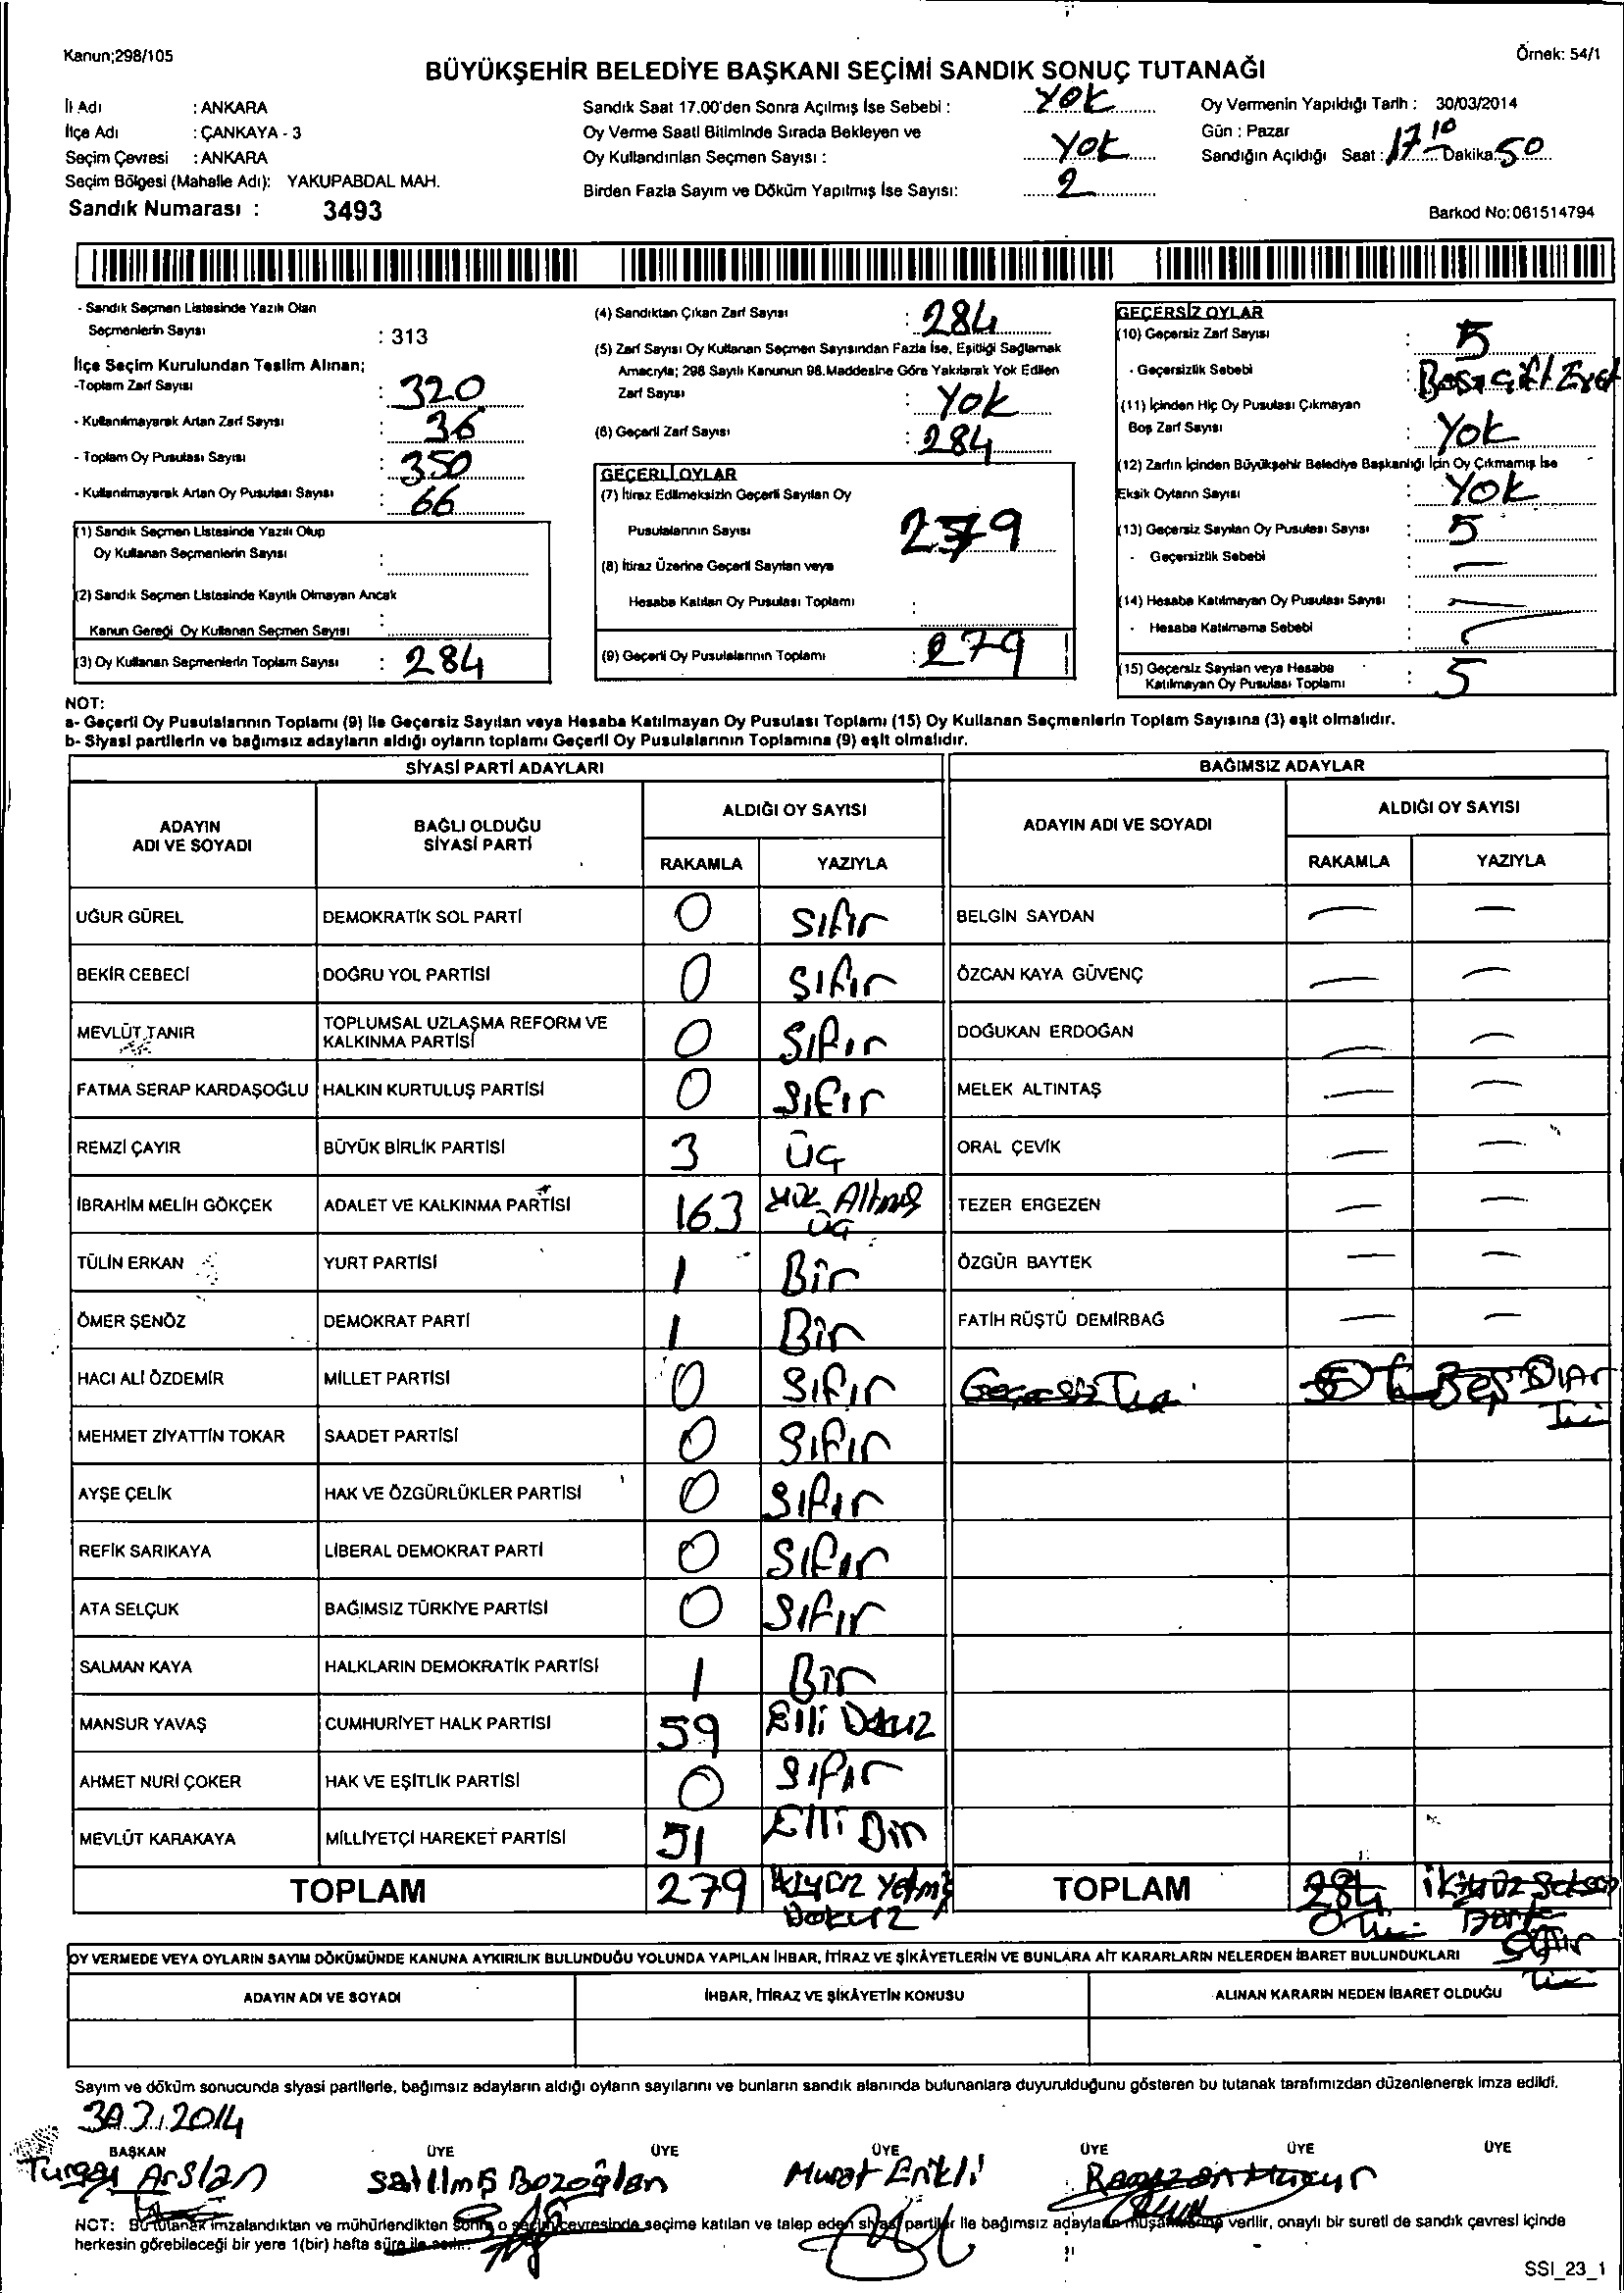 Kanun;298/105
Örnek: 54/1
BÜYÜKŞEHİR BELEDİYE BAŞKANI SEÇİMİ SANDIK SONUÇ TUTANAĞI
İl Adı : ANKARA
İlçe Adı : ÇANKAYA - 3
Seçim Çevresi : ANKARA
Seçim Bölgesi (Mahalle Adı): YAKUPABDAL MAH.
Sandık Numarası : 3493
Sandık Saat 17.00'den Sonra Açılmış İse Sebebi : Yok
Oy Verme Saati Bitiminde Sırada Bekleyen ve
Oy Kullandırılan Seçmen Sayısı : Yok
Birden Fazla Sayım ve Döküm Yapılmış İse Sayısı: 2
Oy Vermenin Yapıldığı Tarih : 30/03/2014
Gün : Pazar
Sandığın Açıldığı Saat : 17 10 Dakika 50
Barkod No:061514794
- Sandık Seçmen Listesinde Yazılı Olan
Seçmenlerin Sayısı : 313
İlçe Seçim Kurulundan Teslim Alınan;
-Toplam Zarf Sayısı : 320
- Kullanılmayarak Artan Zarf Sayısı : 36
- Toplam Oy Pusulası Sayısı : 350
- Kullanılmayarak Artan Oy Pusulası Sayısı : 66
(1) Sandık Seçmen Listesinde Yazılı Olup
Oy Kullanan Seçmenlerin Sayısı :
(2) Sandık Seçmen Listesinde Kayıtlı Olmayan Ancak
Kanun Gereği Oy Kullanan Seçmen Sayısı :
(3) Oy Kullanan Seçmenlerin Toplam Sayısı : 284
(4) Sandıktan Çıkan Zarf Sayısı : 284
(5) Zarf Sayısı Oy Kullanan Seçmen Sayısından Fazla İse, Eşitliği Sağlamak
Amacıyla; 298 Sayılı Kanunun 98.Maddesine Göre Yakılarak Yok Edilen
Zarf Sayısı : Yok
(6) Geçerli Zarf Sayısı : 284
GEÇERLİ OYLAR
(7) İtiraz Edilmeksizin Geçerli Sayılan Oy
Pusulalarının Sayısı 279
(8) İtiraz Üzerine Geçerli Sayılan veya
Hesaba Katılan Oy Pusulası Toplamı :
(9) Geçerli Oy Pusulalarının Toplamı : 279
GEÇERSİZ OYLAR
(10) Geçersiz Zarf Sayısı : 5
- Geçersizlik Sebebi :
(11) İçinden Hiç Oy Pusulası Çıkmayan
Boş Zarf Sayısı : Yok
(12) Zarfın İçinden Büyükşehir Belediye Başkanlığı İçin Oy Çıkmamış İse
Eksik Oyların Sayısı : Yok
(13) Geçersiz Sayılan Oy Pusulası Sayısı : 5
- Geçersizlik Sebebi —
(14) Hesaba Katılmayan Oy Pusulası Sayısı : —
- Hesaba Katılmama Sebebi
(15) Geçersiz Sayılan veya Hesaba
Katılmayan Oy Pusulası Toplamı : 5
NOT:
a- Geçerli Oy Pusulalarının Toplamı (9) ile Geçersiz Sayılan veya Hesaba Katılmayan Oy Pusulası Toplamı (15) Oy Kullanan Seçmenlerin Toplam Sayısına (3) eşit olmalıdır.
b- Siyasi partilerin ve bağımsız adayların aldığı oyların toplamı Geçerli Oy Pusulalarının Toplamına (9) eşit olmalıdır.
SİYASİ PARTİ ADAYLARI BAĞIMSIZ ADAYLAR
ADAYIN ADI VE SOYADI BAĞLI OLDUĞU SİYASİ PARTİ ALDIĞI OY SAYISI ADAYIN ADI VE SOYADI ALDIĞI OY SAYISI
RAKAMLA YAZIYLA RAKAMLA YAZIYLA
UĞUR GÜREL DEMOKRATİK SOL PARTİ 0 Sıfır BELGİN SAYDAN — —
BEKİR CEBECİ DOĞRU YOL PARTİSİ 0 Sıfır ÖZCAN KAYA GÜVENÇ — —
MEVLÜT TANIR TOPLUMSAL UZLAŞMA REFORM VE KALKINMA PARTİSİ 0 Sıfır DOĞUKAN ERDOĞAN — —
FATMA SERAP KARDAŞOĞLU HALKIN KURTULUŞ PARTİSİ 0 Sıfır MELEK ALTINTAŞ — —
REMZİ ÇAYIR BÜYÜK BİRLİK PARTİSİ 3 Üç ORAL ÇEVİK — —
İBRAHİM MELİH GÖKÇEK ADALET VE KALKINMA PARTİSİ 163 Yüz Altmış Üç TEZER ERGEZEN — —
TÜLİN ERKAN YURT PARTİSİ 1 Bir ÖZGÜR BAYTEK — —
ÖMER ŞENÖZ DEMOKRAT PARTİ 1 Bir FATİH RÜŞTÜ DEMİRBAĞ — —
HACI ALİ ÖZDEMİR MİLLET PARTİSİ 0 Sıfır Beş
MEHMET ZİYATTİN TOKAR SAADET PARTİSİ 0 Sıfır
AYŞE ÇELİK HAK VE ÖZGÜRLÜKLER PARTİSİ 0 Sıfır
REFİK SARIKAYA LİBERAL DEMOKRAT PARTİ 0 Sıfır
ATA SELÇUK BAĞIMSIZ TÜRKİYE PARTİSİ 0 Sıfır
SALMAN KAYA HALKLARIN DEMOKRATİK PARTİSİ 1 Bir
MANSUR YAVAŞ CUMHURİYET HALK PARTİSİ 59 Elli Dokuz
AHMET NURİ ÇOKER HAK VE EŞİTLİK PARTİSİ 0 Sıfır
MEVLÜT KARAKAYA MİLLİYETÇİ HAREKET PARTİSİ 51 Elli Bir
TOPLAM 279 İkiyüz Yetmiş Dokuz TOPLAM 284 ikiyüz Seksen
OY VERMEDE VEYA OYLARIN SAYIM DÖKÜMÜNDE KANUNA AYKIRILIK BULUNDUĞU YOLUNDA YAPILAN İHBAR, İTİRAZ VE ŞİKÂYETLERİN VE BUNLARA AİT KARARLARIN NELERDEN İBARET BULUNDUKLARI
ADAYIN ADI VE SOYADI İHBAR, İTİRAZ VE ŞİKÂYETİN KONUSU ALINAN KARARIN NEDEN İBARET OLDUĞU
Sayım ve döküm sonucunda siyasi partilerle, bağımsız adayların aldığı oyların sayılarını ve bunların sandık alanında bulunanlara duyurulduğunu gösteren bu tutanak tarafımızdan düzenlenerek imza edildi.
30.3.2014
BAŞKAN ÜYE ÜYE ÜYE ÜYE ÜYE ÜYE
Turgay Arslan Satılmış Bozoğlan Murat Erikli
NOT: Bu tutanak imzalandıktan ve mühürlendikten sonra o seçim çevresinde seçime katılan ve talep eden siyasi partiler ile bağımsız adayların müşahitlerine verilir, onaylı bir sureti de sandık çevresi içinde
herkesin görebileceği bir yere 1(bir) hafta süre ile asılır.
SSI_23_1